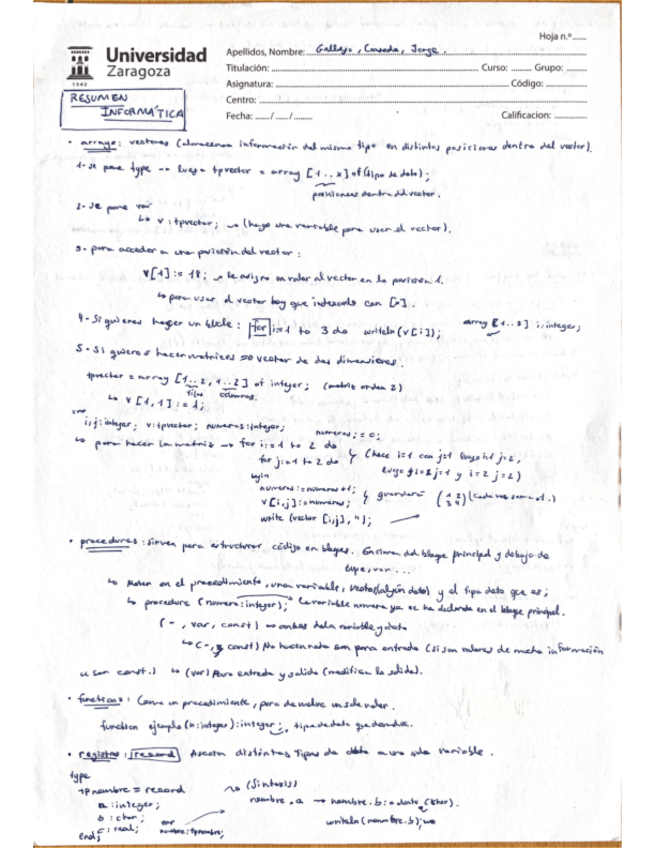 Hoja n.º
Universidad
Zaragoza
1542
Apellidos, Nombre: Gallego, , Jorge.
Titulación: Curso: Grupo:
Asignatura: Código:
Centro:
Fecha: / / Calificacion:
RESUMEN
INFORMÁTICA
• arrays: vectores (almacena información del mismo tipo en distintas posiciones dentro del vector).
1- se pone type → luego tpvector = array [1..x] of (tipo de dato);
posiciones dentro del vector.
2- se pone var
↳ v: tpvector; → (hago una variable para usar el vector).
3- para acceder a una posición del vector:
V[1] := 18; → le asigno un valor al vector en la posición 1.
↳ para usar el vector hay que indexarlo con [x].
4- Si quieres hacer un bucle: for i:=1 to 3 do writeln(v[i]); array [1..3] i: integer;
5- Si quieres hacer matrices => vector de dos dimensiones.
tpvector = array [1..2, 1..2] of integer; (matriz orden 2)
filas columnas.
↳ v[1,1] := 1;
var
i,j: integer; v: tpvector; numeros: integer;
numeros := 0;
↳ para hacer la matriz → for i:=1 to 2 do
for j:=1 to 2 do (hace i=1 con j=1 luego i=1 j=2;
luego i=2 j=1 y i=2 j=2)
begin
numeros := numeros+1;
v[i,j] := numeros; guardará (1 2 3 4) (cada vez suma +1.)
write (vector [i,j], '');
• procedures: sirven para estructurar código en bloques. Encima del bloque principal y debajo de
type, var ...
↳ Meten en el procedimiento, una variable, vectores (algún dato) y el tipo dato que es;
↳ procedure (numero: integer); La variable numero ya se ha declarado en el bloque principal.
( - , var, const) → antes de la variable y dato
↳ ( - , y const) No hacen nada son para entrada (si son valores de mucha información
usar const.) ↳ (var) Para entrada y salida (modifican la salida).
• functions: Como un procedimiento, pero devuelve un solo valor.
function ejemplo (n: integer): integer; tipo de dato que devuelve.
• registros: record Asocian distintos tipos de dato a una sola variable.
type
tpnombre = record → (Sintaxis)
a: integer; nombre.a → nombre.b := dato (char).
b: char; var writeln(nombre.b);
c: real; nombre: tpnombre;
end;